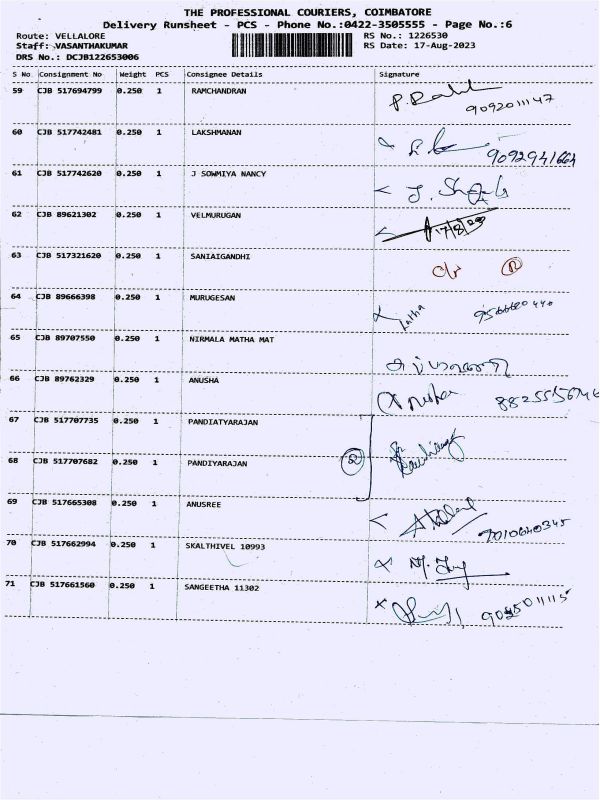 THE PROFESSIONAL COURIERS, COIMBATORE
Delivery Runsheet - PCS - Phone No.:0422-3505555 - Page No.:6
Route: VELLALORE RS No.: 1226530
Staff: VASANTHAKUMAR RS Date: 17-Aug-2023
DRS No.: DCJB122653006
S No Consignment No Weight PCS Consignee Details Signature
59 CJB 517694799 0.250 1 RAMCHANDRAN
9092011147
60 CJB 517742481 0.250 1 LAKSHMANAN
9092941664
61 CJB 517742620 0.250 1 J SOWMIYA NANCY
62 CJB 89621302 0.250 1 VELMURUGAN
17/8/23
63 CJB 517321620 0.250 1 SANIAIGANDHI
64 CJB 89666398 0.250 1 MURUGESAN
Latha
65 CJB 89707550 0.250 1 NIRMALA MATHA MAT
66 CJB 89762329 0.250 1 ANUSHA
Anusha
67 CJB 517707735 0.250 1 PANDIATYARAJAN
68 CJB 517707682 0.250 1 PANDIYARAJAN
2
69 CJB 517665308 0.250 1 ANUSREE
7010640345
70 CJB 517662994 0.250 1 SKALTHIVEL 10993
71 CJB 517661560 0.250 1 SANGEETHA 11302